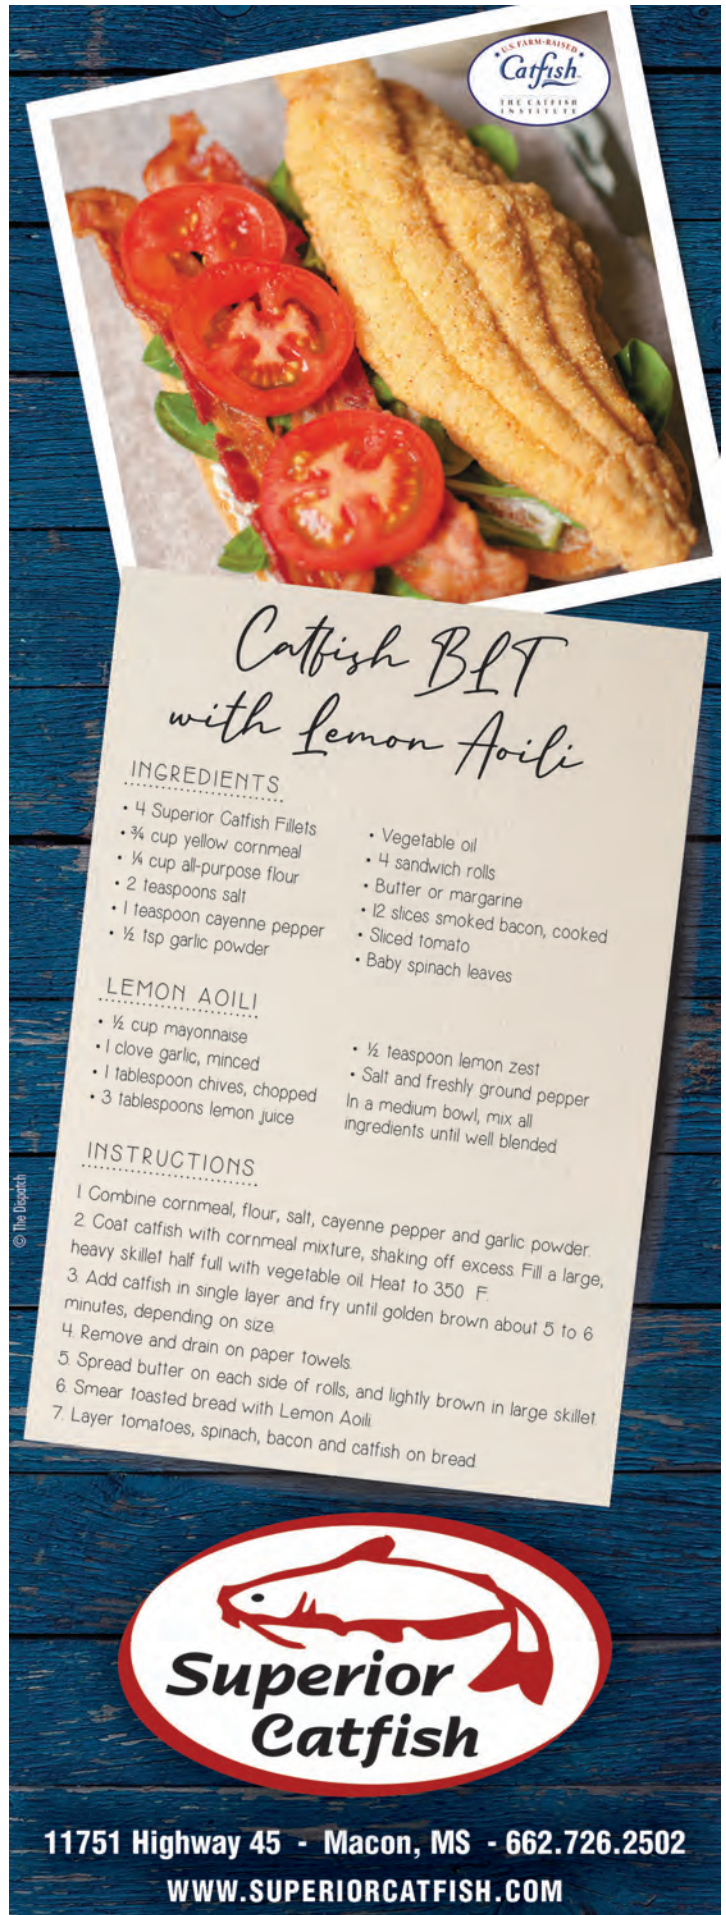 U.S. FARM-RAISED
Catfish
THE CATFISH
INSTITUTE
Catfish BLT
with Lemon Aoili
INGREDIENTS
• 4 Superior Catfish Fillets
• ¾ cup yellow cornmeal
• ¼ cup all-purpose flour
• 2 teaspoons salt
• 1 teaspoon cayenne pepper
• ½ tsp garlic powder
• Vegetable oil
• 4 sandwich rolls
• Butter or margarine
• 12 slices smoked bacon, cooked
• Sliced tomato
• Baby spinach leaves
LEMON AOILI
• ½ cup mayonnaise
• 1 clove garlic, minced
• 1 tablespoon chives, chopped
• 3 tablespoons lemon juice
• ½ teaspoon lemon zest
• Salt and freshly ground pepper
In a medium bowl, mix all
ingredients until well blended
INSTRUCTIONS
1. Combine cornmeal, flour, salt, cayenne pepper and garlic powder.
2. Coat catfish with cornmeal mixture, shaking off excess. Fill a large,
heavy skillet half full with vegetable oil. Heat to 350 F.
3. Add catfish in single layer and fry until golden brown about 5 to 6
minutes, depending on size.
4. Remove and drain on paper towels.
5. Spread butter on each side of rolls, and lightly brown in large skillet.
6. Smear toasted bread with Lemon Aoili.
7. Layer tomatoes, spinach, bacon and catfish on bread.
© The Dispatch
Superior
Catfish
11751 Highway 45 - Macon, MS - 662.726.2502
WWW.SUPERIORCATFISH.COM